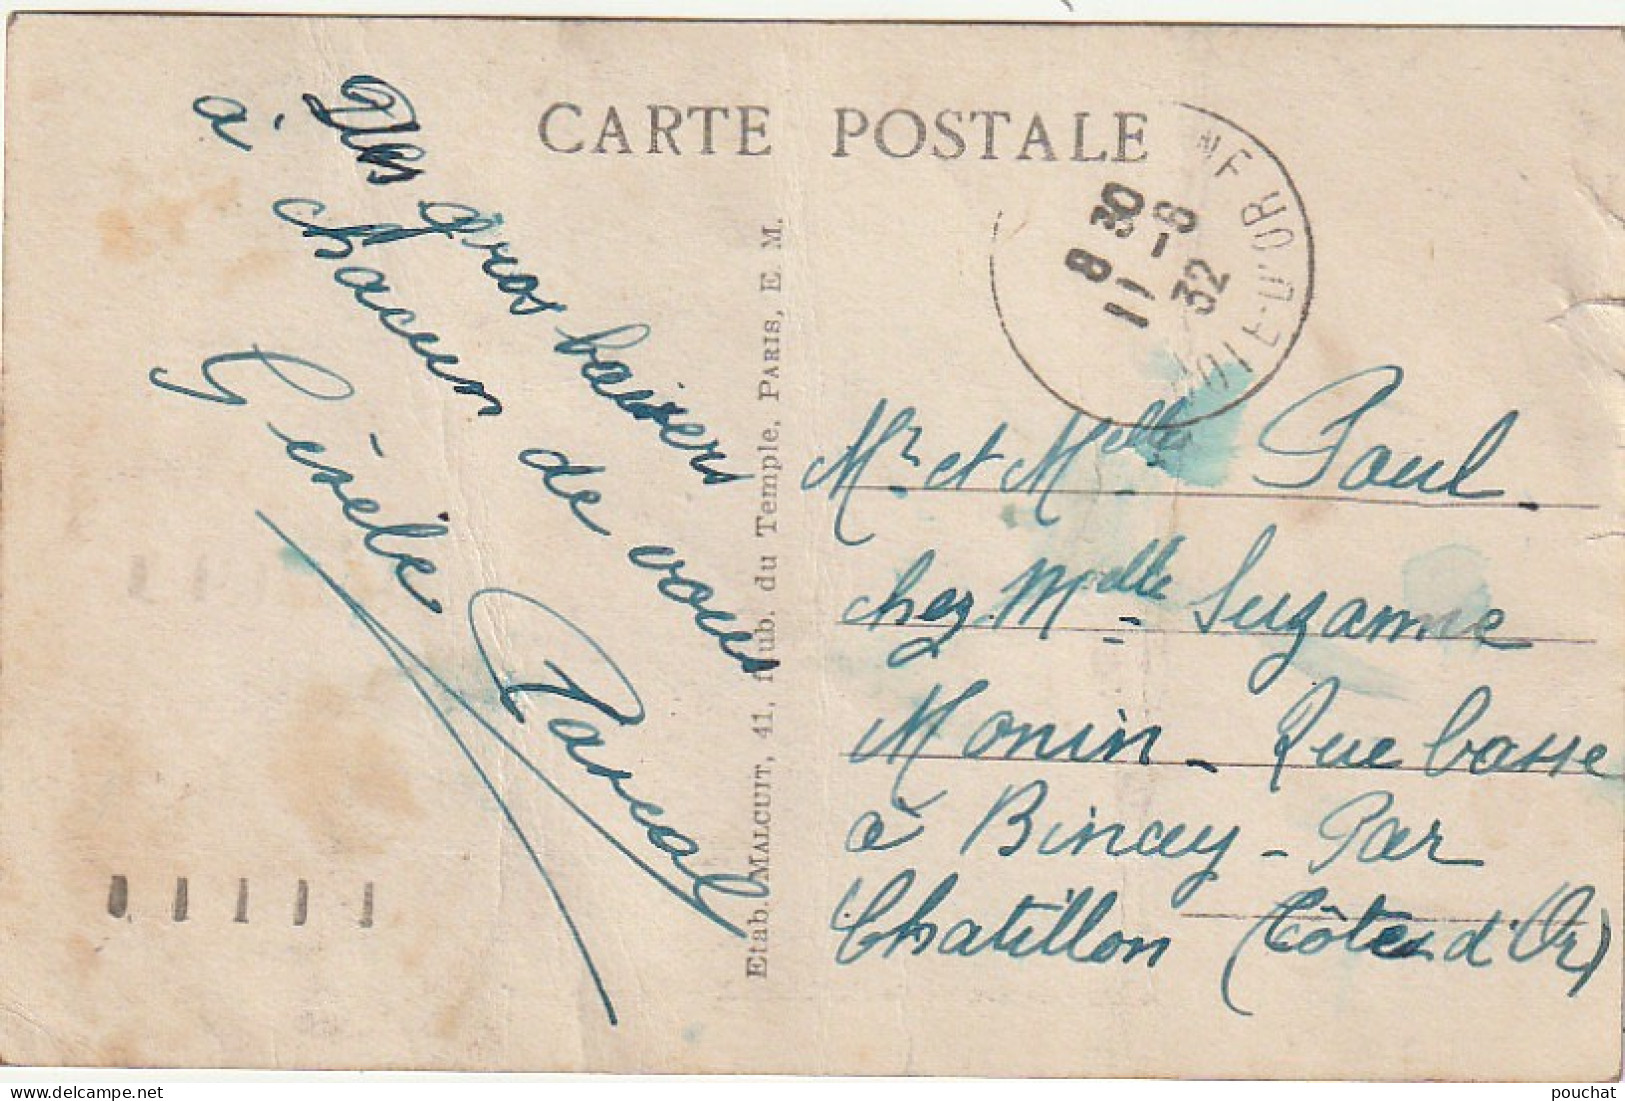 CARTE POSTALE
Des gros baisers
à chacun de vous
Gisèle Pareal
Etab. MALCUIT, 41, Faub. du Temple, PARIS, E. M.
8 30
11 -8
32
D'OR
Mr et Melles Paul
chez Melle Suzanne
Monin - Rue basse
à Bincey - Par
Chatillon (Côtes d'Or)
pouchat